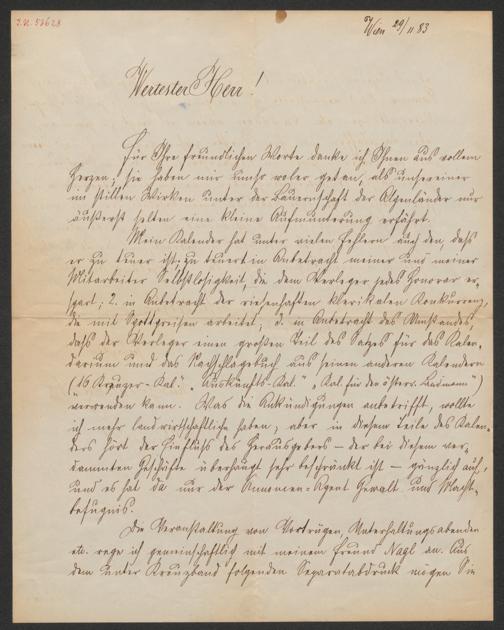 I.N. 53628
Wien 29/11 83
Wertester Herr!
Für Ihre freundlichen Worte danke ich Ihnen aus vollem
Herzen; sie haben mir umso woler getan, als unsereiner
im stillen Wirken unter der Bauernschaft der Alpenländer nur
äußerst selten eine kleine Aufmunterung erfährt.
Mein Kalender hat unter vielen Fehlern auch den, dass
er zu teuer ist; zu teuer 1. in Anbetracht meiner und meiner
Mitarbeiter Selbstlosigkeit, die dem Verleger jedes Honorar er-
spart; 2. in Anbetracht der riesenhaften klerikalen Konkurrenz,
die mit Spottpreisen arbeitet; 3. in Anbetracht des Umstandes,
dass der Verleger einen großen Teil des Satzes für das Kalen-
darium und das Nachschlagebuch aus seinen anderen Kalendern
("16 Kreuzer-Kal." "Auskunfts-Kal." "Kal. für den österr. Landmann")
verwenden kann. Was die Ankündigungen anbetrifft, wollte
ich mehr landwirtschaftliche haben; aber in diesem Teile des Kalen-
ders hört der Einfluss des Herausgebers – der bei diesem ver-
dammten Geschäfte überhaupt sehr beschränkt ist – gänzlich auf,
und es hat da nur der Annoncen-Agent Gewalt und Macht-
befugnis.
Die Veranstaltung von Vorträgen, Unterhaltungsabenden
etc. rege ich gemeinschaftlich mit meinem Freund Nagl an. Aus
dem unter Kreuzband folgenden Separatabdruck mögen Sie